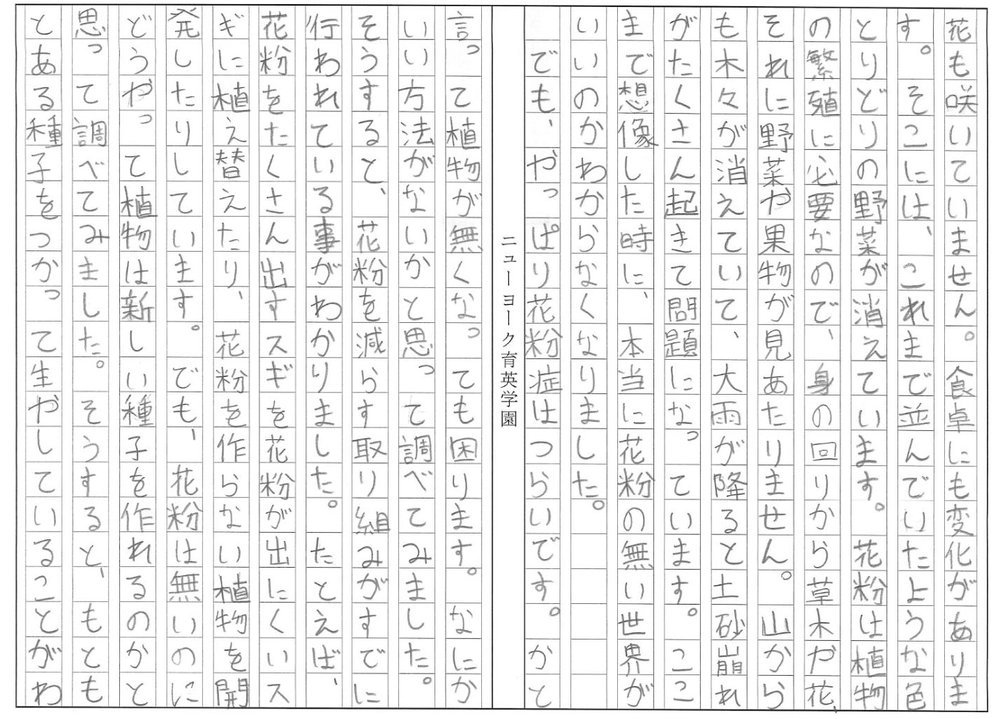 花も咲いていません。食卓にも変化がありま
す。そこには、これまで並んでいたような色
とりどりの野菜が消えています。花粉は植物
の繁殖に必要なので、身の回りから草木や花、
それに野菜や果物が見あたりません。山から
も木々が消えていて、大雨が降ると土砂崩れ
がたくさん起きて問題になっています。ここ
まで想像した時に、本当に花粉の無い世界が
いいのかわからなくなりました。
でも、やっぱり花粉症はつらいです。かと
ニューヨーク育英学園
言って植物が無くなっても困ります。なにか
いい方法がないかと思って調べてみました。
そうすると、花粉を減らす取り組みがすでに
行われている事がわかりました。たとえば、
花粉をたくさん出すスギを花粉が出にくいス
ギに植え替えたり、花粉を作らない植物を開
発したりしています。でも、花粉は無いのに
どうやって植物は新しい種子を作れるのかと
思って調べてみました。そうすると、もとも
とある種子をつかって生やしていることがわ